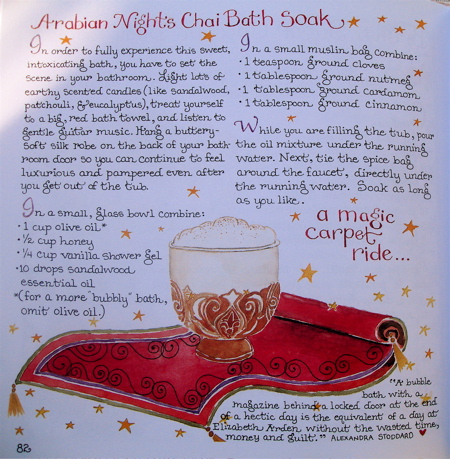 Arabian Nights Chai Bath Soak
In order to fully experience this sweet,
intoxicating bath, you have to set the
scene in your bathroom. Light lots of
earthy scented candles (like sandalwood,
patchouli, & eucalyptus), treat yourself
to a big, red bath towel, and listen to
gentle guitar music. Hang a buttery-
soft silk robe on the back of your bath
room door so you can continue to feel
luxurious and pampered even after
you get out of the tub.
In a small, glass bowl combine:
• 1 cup olive oil*
• 1/2 cup honey
• 1/4 cup vanilla shower gel
• 10 drops sandalwood
essential oil
*(for a more "bubbly" bath,
omit olive oil.)
In a small muslin bag combine:
• 1 teaspoon ground cloves
• 1 tablespoon ground nutmeg
• 1 tablespoon ground cardamom
• 1 tablespoon ground cinnamon
While you are filling the tub, pour
the oil mixture under the running
water. Next, tie the spice bag
around the faucet, directly under
the running water. Soak as long
as you like.
a magic
carpet
ride...
"A bubble
bath with a
magazine behind a locked door at the end
of a hectic day is the equivalent of a day at
Elizabeth Arden without the wasted time,
money and guilt." ALEXANDRA STODDARD
82